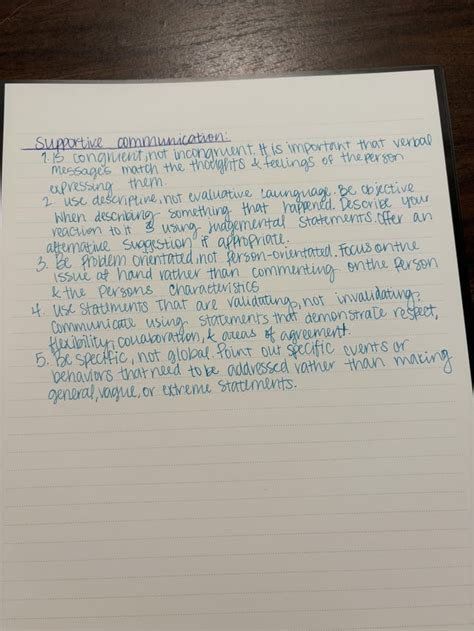 Supportive communication:
1. is congruent, not incongruent. It is important that verbal
messages match the thoughts & feelings of the person
expressing them.
2. use descriptive, not evaluative launguage. Be objective
when describing something that happened. Describe your
reaction to it & using judgemental statements. Offer an
alternative suggestion if appropriate.
3. Be problem orientated, not person-orientated. Focus on the
issue at hand rather than commenting on the person
& the persons characteristics
4. use statements that are validating, not invalidating;
communicate using statements that demonstrate respect,
flexibility, collaboration, & areas of agreement.
5. Be specific, not global. Point out specific events or
behaviors that need to be addressed rather than making
general, vague, or extreme statements.